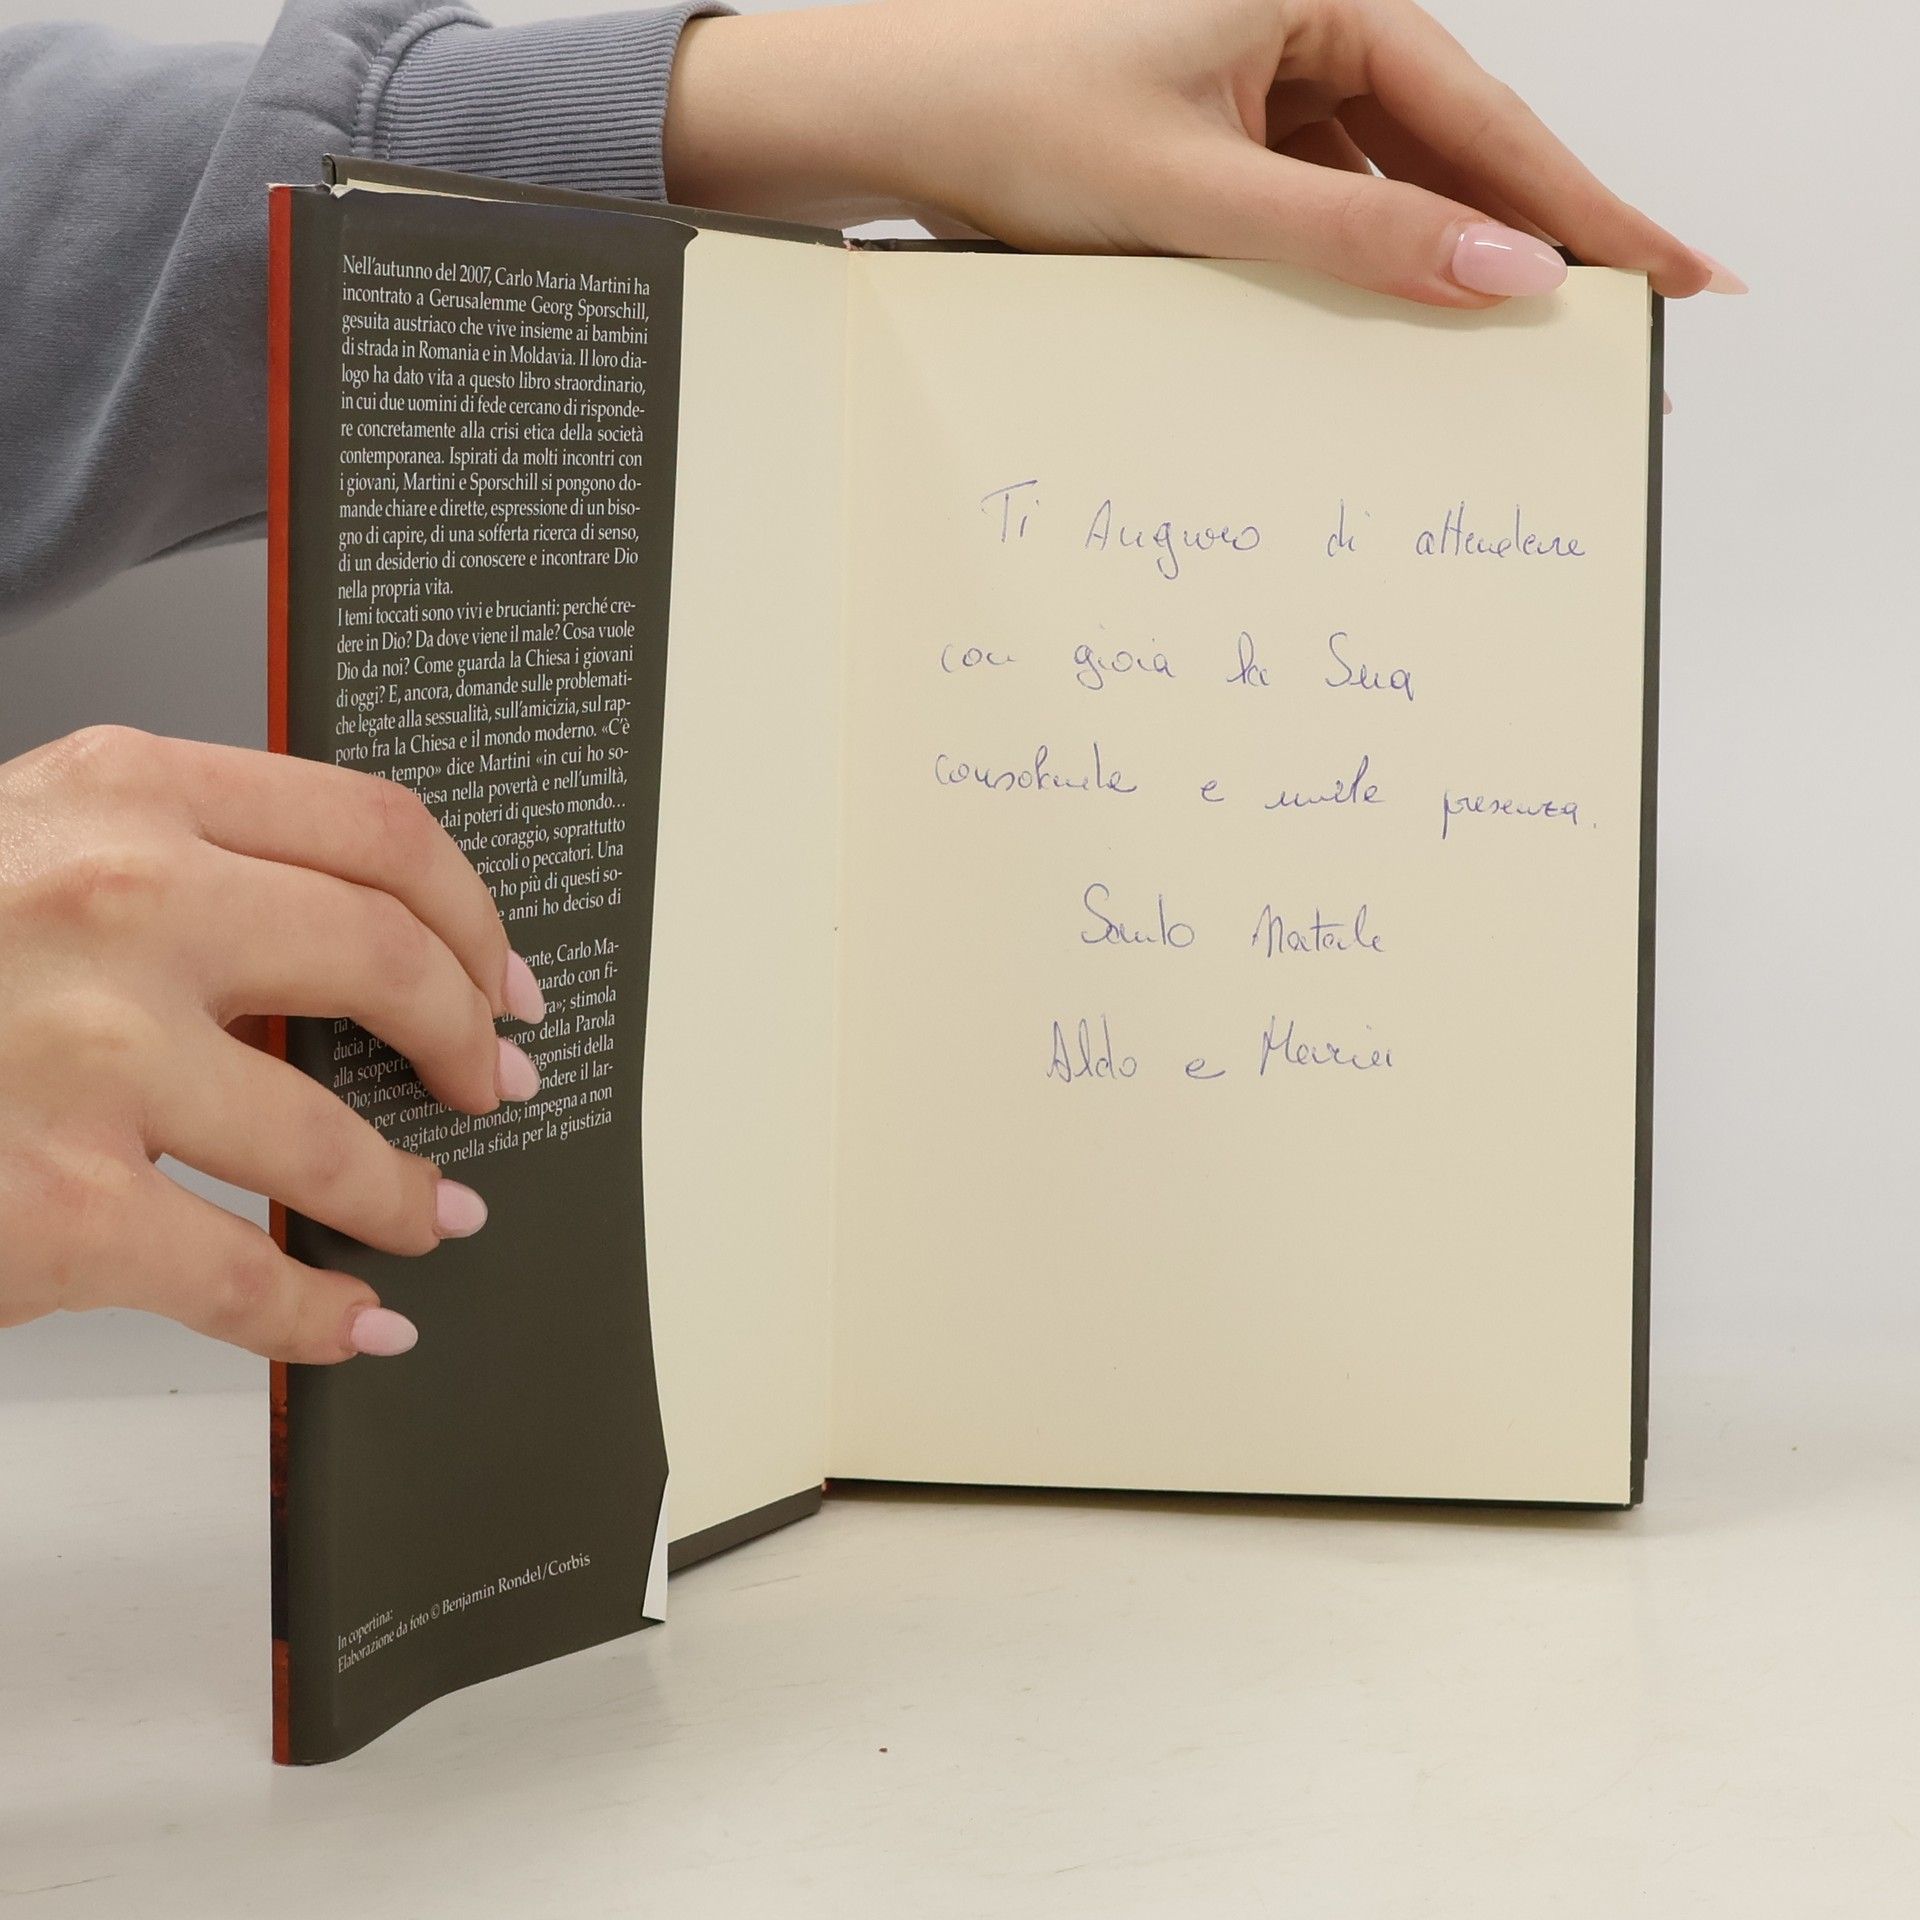 Nell'autunno del 2007, Carlo Maria Martini ha
incontrato a Gerusalemme Georg Sporschill,
gesuita austriaco che vive insieme ai bambini
di strada in Romania e in Moldavia. Il loro dia-
logo ha dato vita a questo libro straordinario,
in cui due uomini di fede cercano di risponde-
re concretamente alla crisi etica della società
contemporanea. Ispirati da molti incontri con
i giovani, Martini e Sporschill si pongono do-
mande chiare e dirette, espressione di un biso-
gno di capire, di una sofferta ricerca di senso,
di un desiderio di conoscere e incontrare Dio
nella propria vita.
I temi toccati sono vivi e brucianti: perché cre-
dere in Dio? Da dove viene il male? Cosa vuole
Dio da noi? Come guarda la Chiesa i giovani
di oggi? E, ancora, domande sulle problemati-
che legate alla sessualità, sull'amicizia, sul rap-
porto fra la Chiesa e il mondo moderno. «C'è
tempo» dice Martini «in cui ho so-
nella povertà e nell'umiltà,
dai poteri di questo mondo...
coraggio, soprattutto
piccoli o peccatori. Una
ho più di questi so-
anni ho deciso di
Carlo Ma-
con fi-
stimola
della Parola
della
alla il lar-
Dio;
per
agitato del mondo; impegna a non
nella sfida per la giustizia
In copertina:
Elaborazione da foto © Benjamin Rondel/Corbis
Ti Auguro di attendere
con gioia la Sua
consolante e umile presenza.
Santo Natale
Aldo e Maria